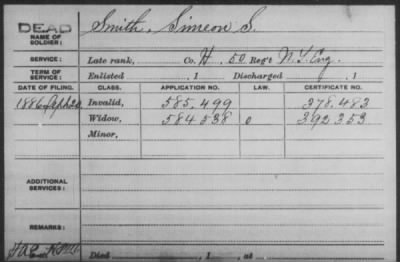 DEAD
NAME OF SOLDIER: Smith, Simeon S.
SERVICE: Late rank, Co. H, 50 Reg't N.Y. Eng.
TERM OF SERVICE: Enlisted , 1 Discharged , 1
DATE OF FILING. CLASS. APPLICATION NO. LAW. CERTIFICATE NO.
1886 Sept 20 Invalid, 585,499 378.483
Widow, 584538 0 392353
Minor,
ADDITIONAL SERVICES:
REMARKS:
Died , 1 , at